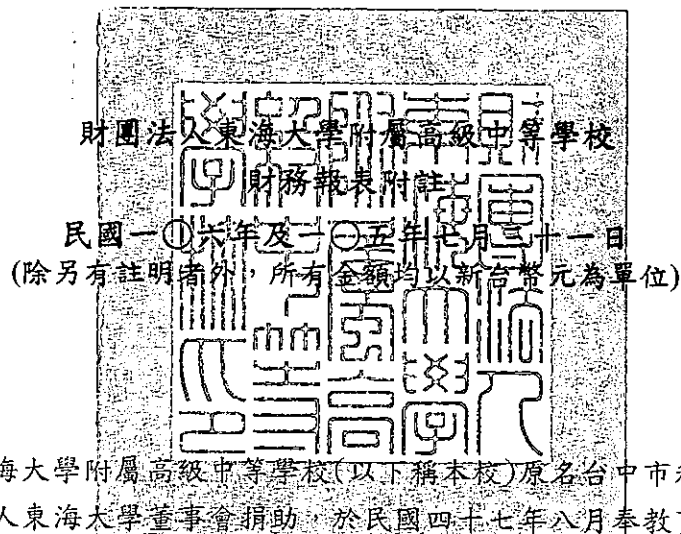 財團法人東海大學附屬高級中等學校
財務報表附註
民國一〇六年及一〇五年七月三十一日
(除另有註明者外，所有金額均以新台幣元為單位)
海大學附屬高級中等學校(以下稱本校)原名台中市
人東海大學董事會捐助，於民國四十七年八月奉教